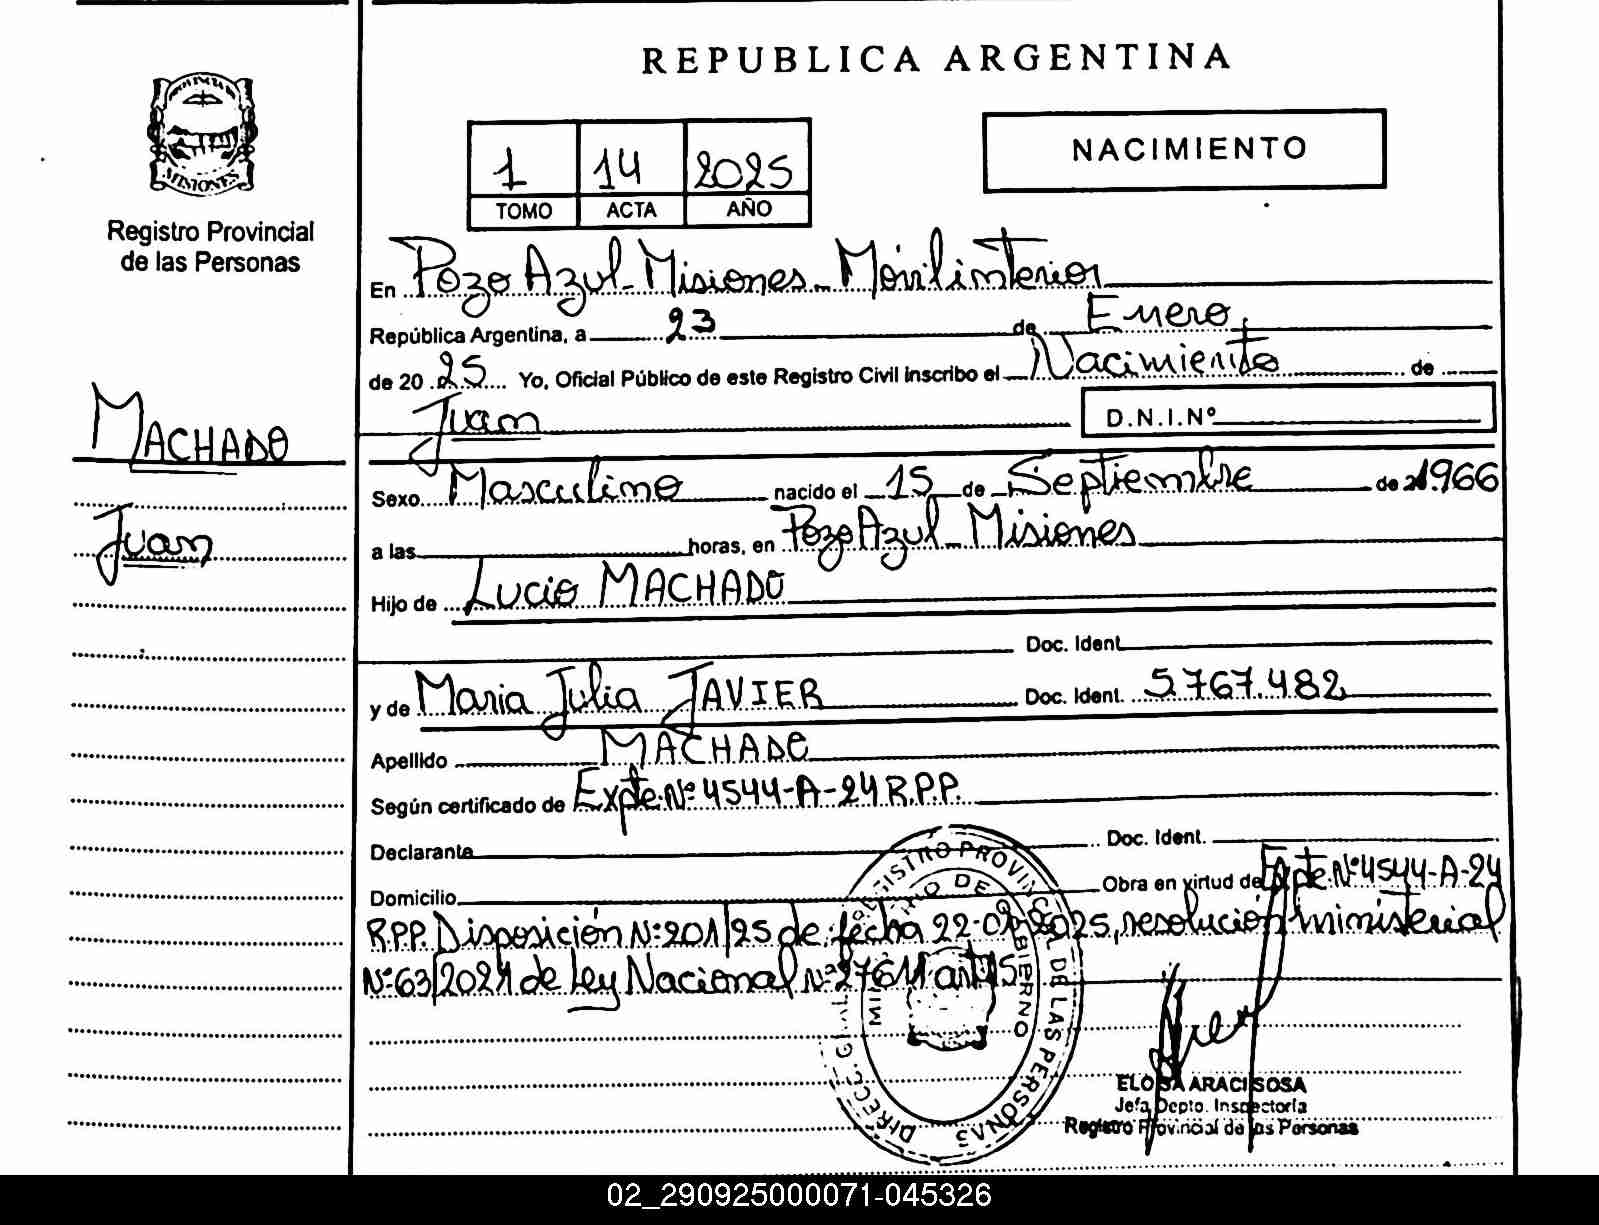 REPUBLICA ARGENTINA
PROVINCIA DE
MISIONES
Registro Provincial
de las Personas
1 14 2025
TOMO ACTA AÑO
NACIMIENTO
En Pozo Azul - Misiones - Móvil interior
República Argentina, a 23 de Enero
de 20 25 Yo, Oficial Público de este Registro Civil inscribo el Nacimiento de
Juan
D.N.I.Nº
MACHADO
Juan
Sexo Masculino nacido el 15 de Septiembre de 1966
a las horas, en Pozo Azul - Misiones
Hijo de Lucio MACHADO
Doc. Ident.
y de Maria Julia JAVIER Doc. Ident. 5.767.482
Apellido MACHADO
Según certificado de Expte.Nº 4544-A-24 R.P.P.
Declarante Doc. Ident.
Domicilio Obra en virtud de Expte.Nº4544-A-24
R.P.P. Disposición Nº201/25 de fecha 22-01-2025, resolución ministerial
Nº63/2021 de Ley Nacional Nº27611 art 15
DIRECC. GRAL. REGISTRO PROVINCIAL DE LAS PERSONAS
MINISTERIO DE GOBIERNO
ELOISA ARACI SOSA
Jefa Depto. Inspectoría
Registro Provincial de las Personas
02_290925000071-045326